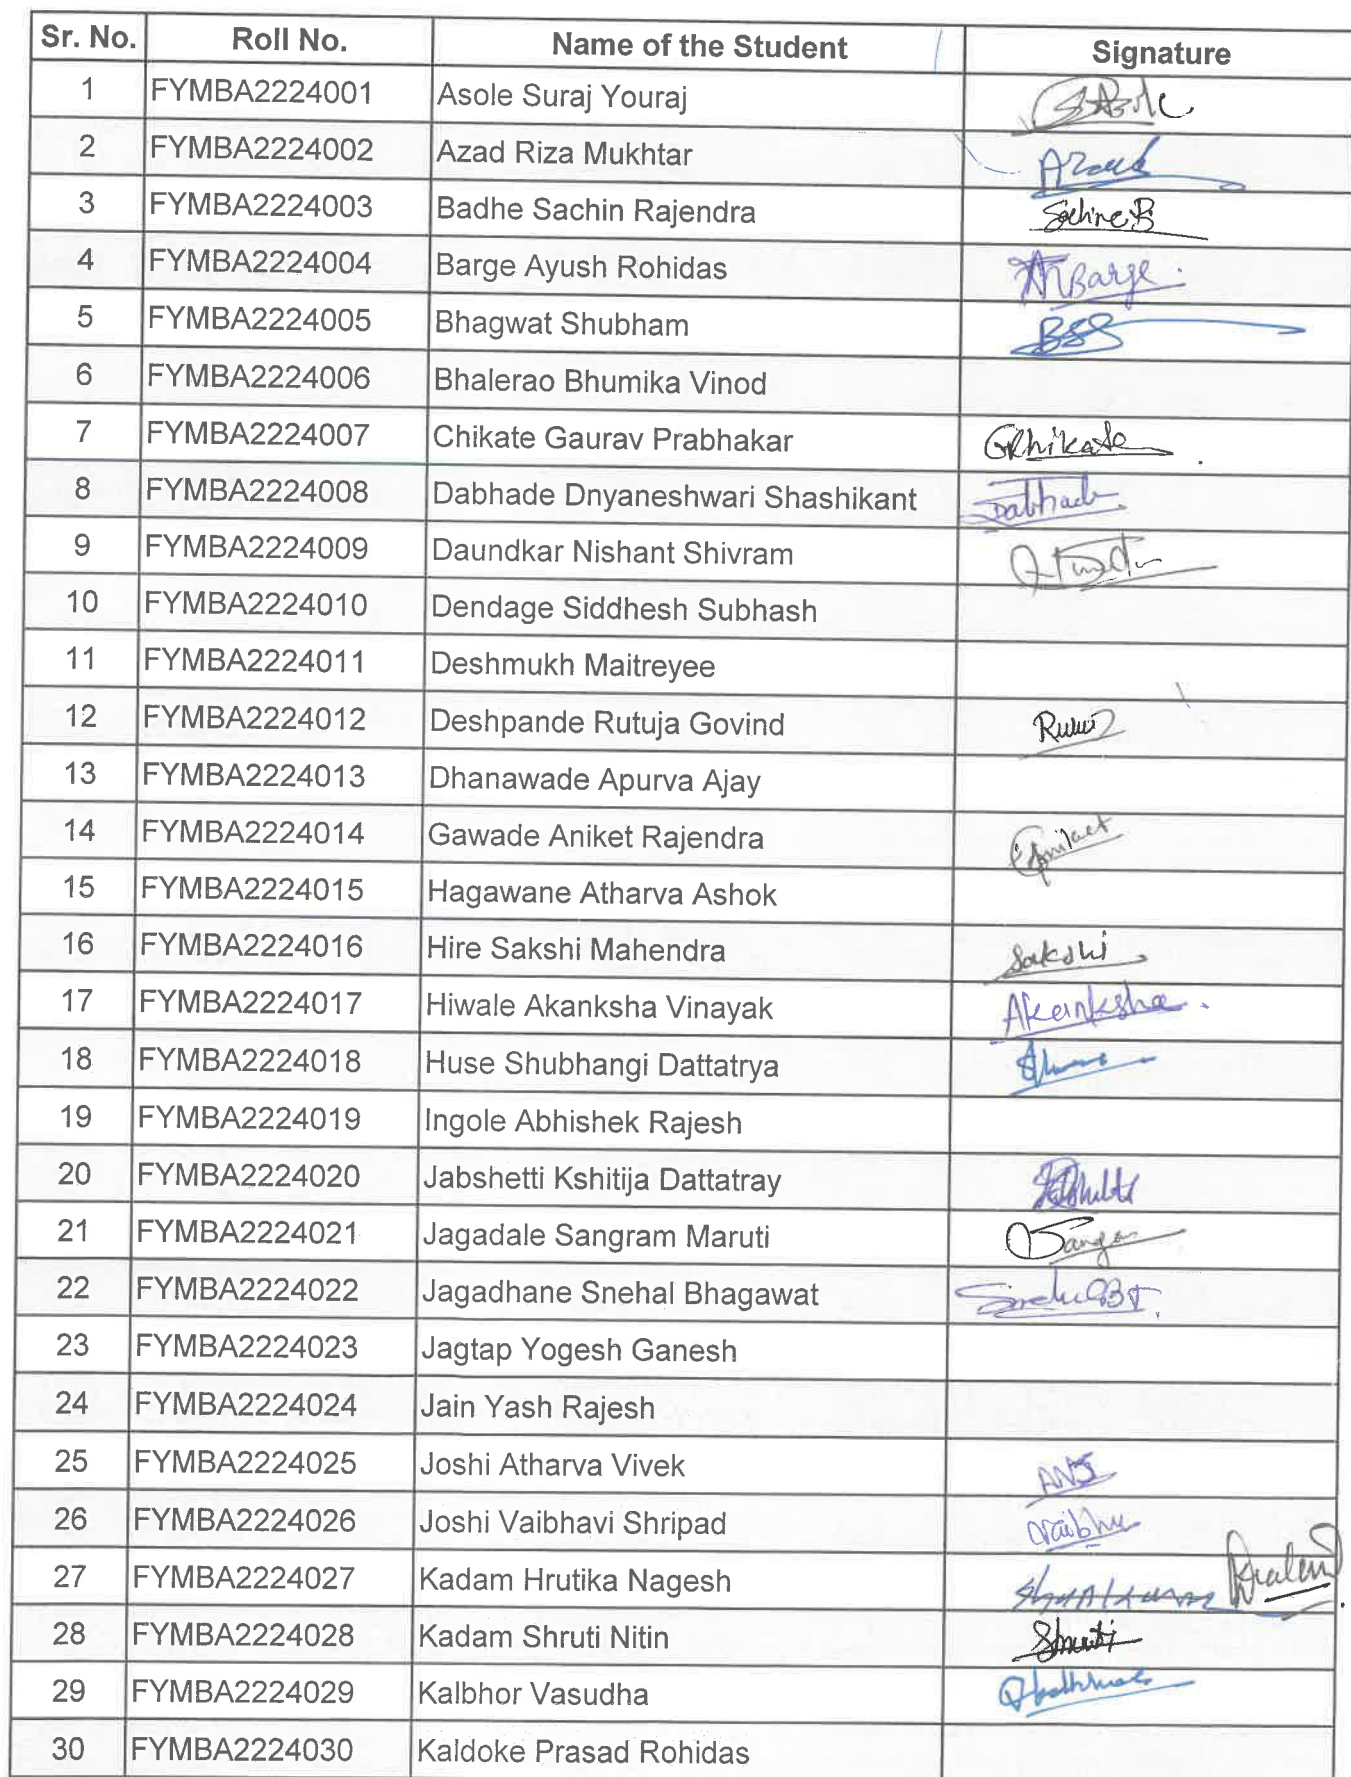 Sr. No. Roll No. Name of the Student Signature
1 FYMBA2224001 Asole Suraj Youraj
2 FYMBA2224002 Azad Riza Mukhtar
3 FYMBA2224003 Badhe Sachin Rajendra
4 FYMBA2224004 Barge Ayush Rohidas ARBarge.
5 FYMBA2224005 Bhagwat Shubham
6 FYMBA2224006 Bhalerao Bhumika Vinod
7 FYMBA2224007 Chikate Gaurav Prabhakar GChikate
8 FYMBA2224008 Dabhade Dnyaneshwari Shashikant Dabhade.
9 FYMBA2224009 Daundkar Nishant Shivram
10 FYMBA2224010 Dendage Siddhesh Subhash
11 FYMBA2224011 Deshmukh Maitreyee
12 FYMBA2224012 Deshpande Rutuja Govind
13 FYMBA2224013 Dhanawade Apurva Ajay
14 FYMBA2224014 Gawade Aniket Rajendra
15 FYMBA2224015 Hagawane Atharva Ashok
16 FYMBA2224016 Hire Sakshi Mahendra Sakshi
17 FYMBA2224017 Hiwale Akanksha Vinayak Akanksha.
18 FYMBA2224018 Huse Shubhangi Dattatrya
19 FYMBA2224019 Ingole Abhishek Rajesh
20 FYMBA2224020 Jabshetti Kshitija Dattatray
21 FYMBA2224021 Jagadale Sangram Maruti
22 FYMBA2224022 Jagadhane Snehal Bhagawat
23 FYMBA2224023 Jagtap Yogesh Ganesh
24 FYMBA2224024 Jain Yash Rajesh
25 FYMBA2224025 Joshi Atharva Vivek
26 FYMBA2224026 Joshi Vaibhavi Shripad
27 FYMBA2224027 Kadam Hrutika Nagesh
28 FYMBA2224028 Kadam Shruti Nitin Shruti
29 FYMBA2224029 Kalbhor Vasudha
30 FYMBA2224030 Kaldoke Prasad Rohidas